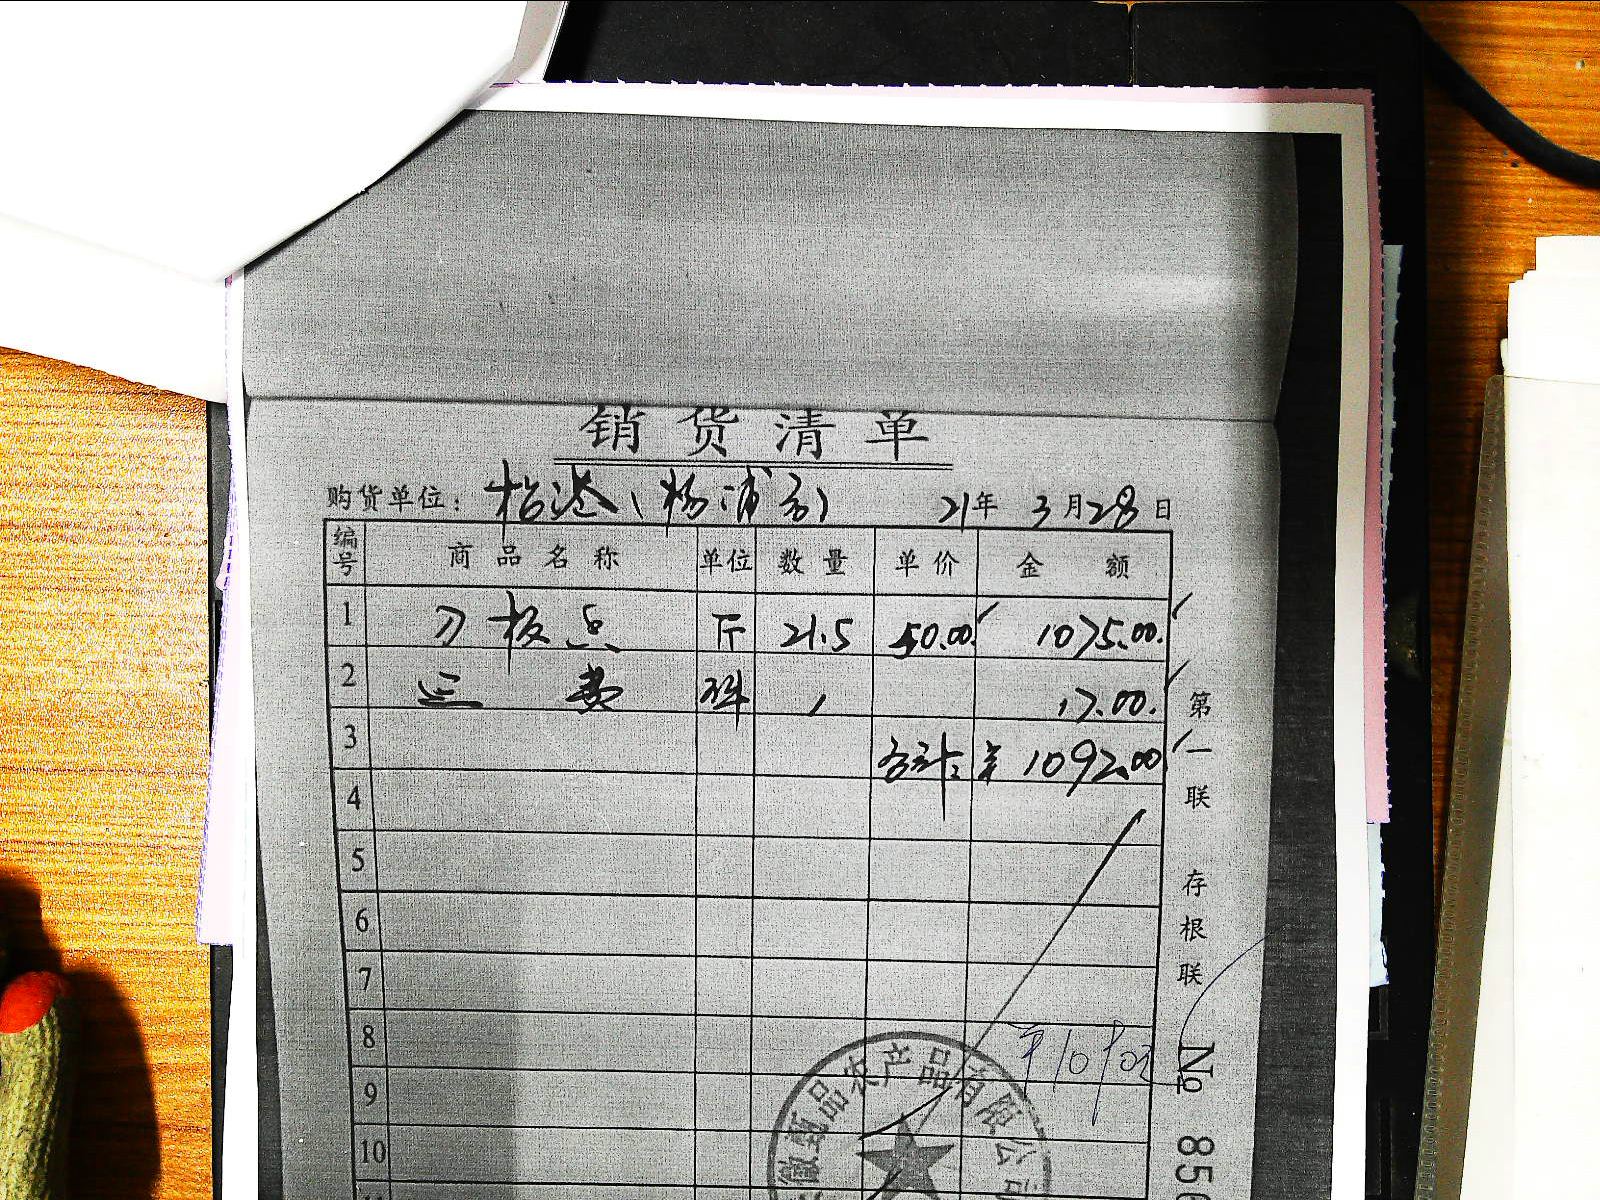 销货清单
购货单位: 怡港(杨浦方) 21年 3月28日
编号 商品名称 单位 数量 单价 金额
1 刀板 斤 21.5 50.00 1075.00.
2 运费 1 17.00.
3 合计: ¥ 1092.00
4
5
6
7
8
9
10
第一联 存根联
№ 850
徽甄品农产品有限公司